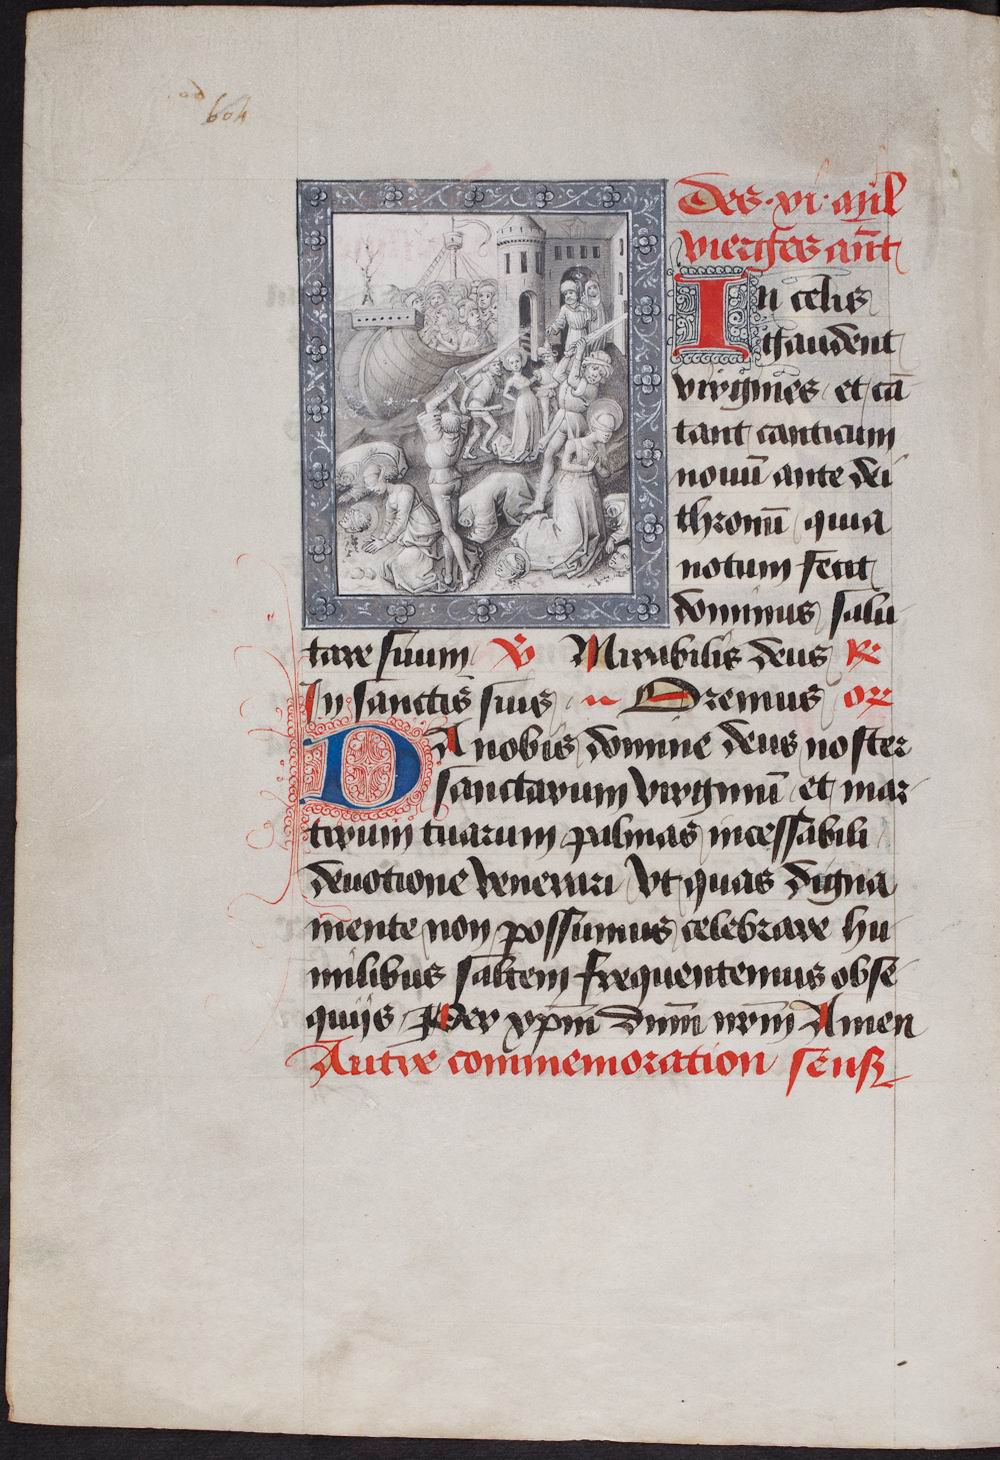 604
Des .xi. mil
vierges añt
In celis
gaudent
virgines et cā
tant canticum
nouū ante dei
thronū quia
notum fecit
dominus salu
tare suum V Mirabilis deus R
In sanctis suis Oremus or
DA nobis domine deus noster
sanctarum virginū et mar
tirum tuarum palmas incessabili
deuotione venerari Vt quas digna
mente non possumus celebrare hu
milibus saltem frequentemus obse
quijs Per xpm̄ dnm̄ nrm̄ Amen
Autre commemoration